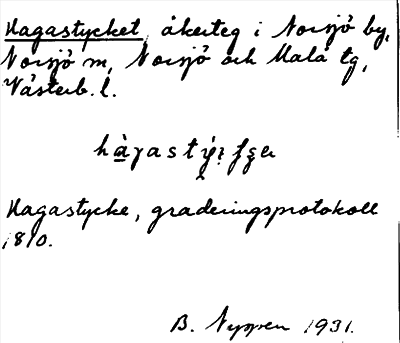 Hagastycket, åkerteg i Norsjö by,
Norsjö m, Norsjö och Malå tg,
Västerb. l.
Hagastycke, graderingsprotokoll
1810.
B. Nyppen 1931.